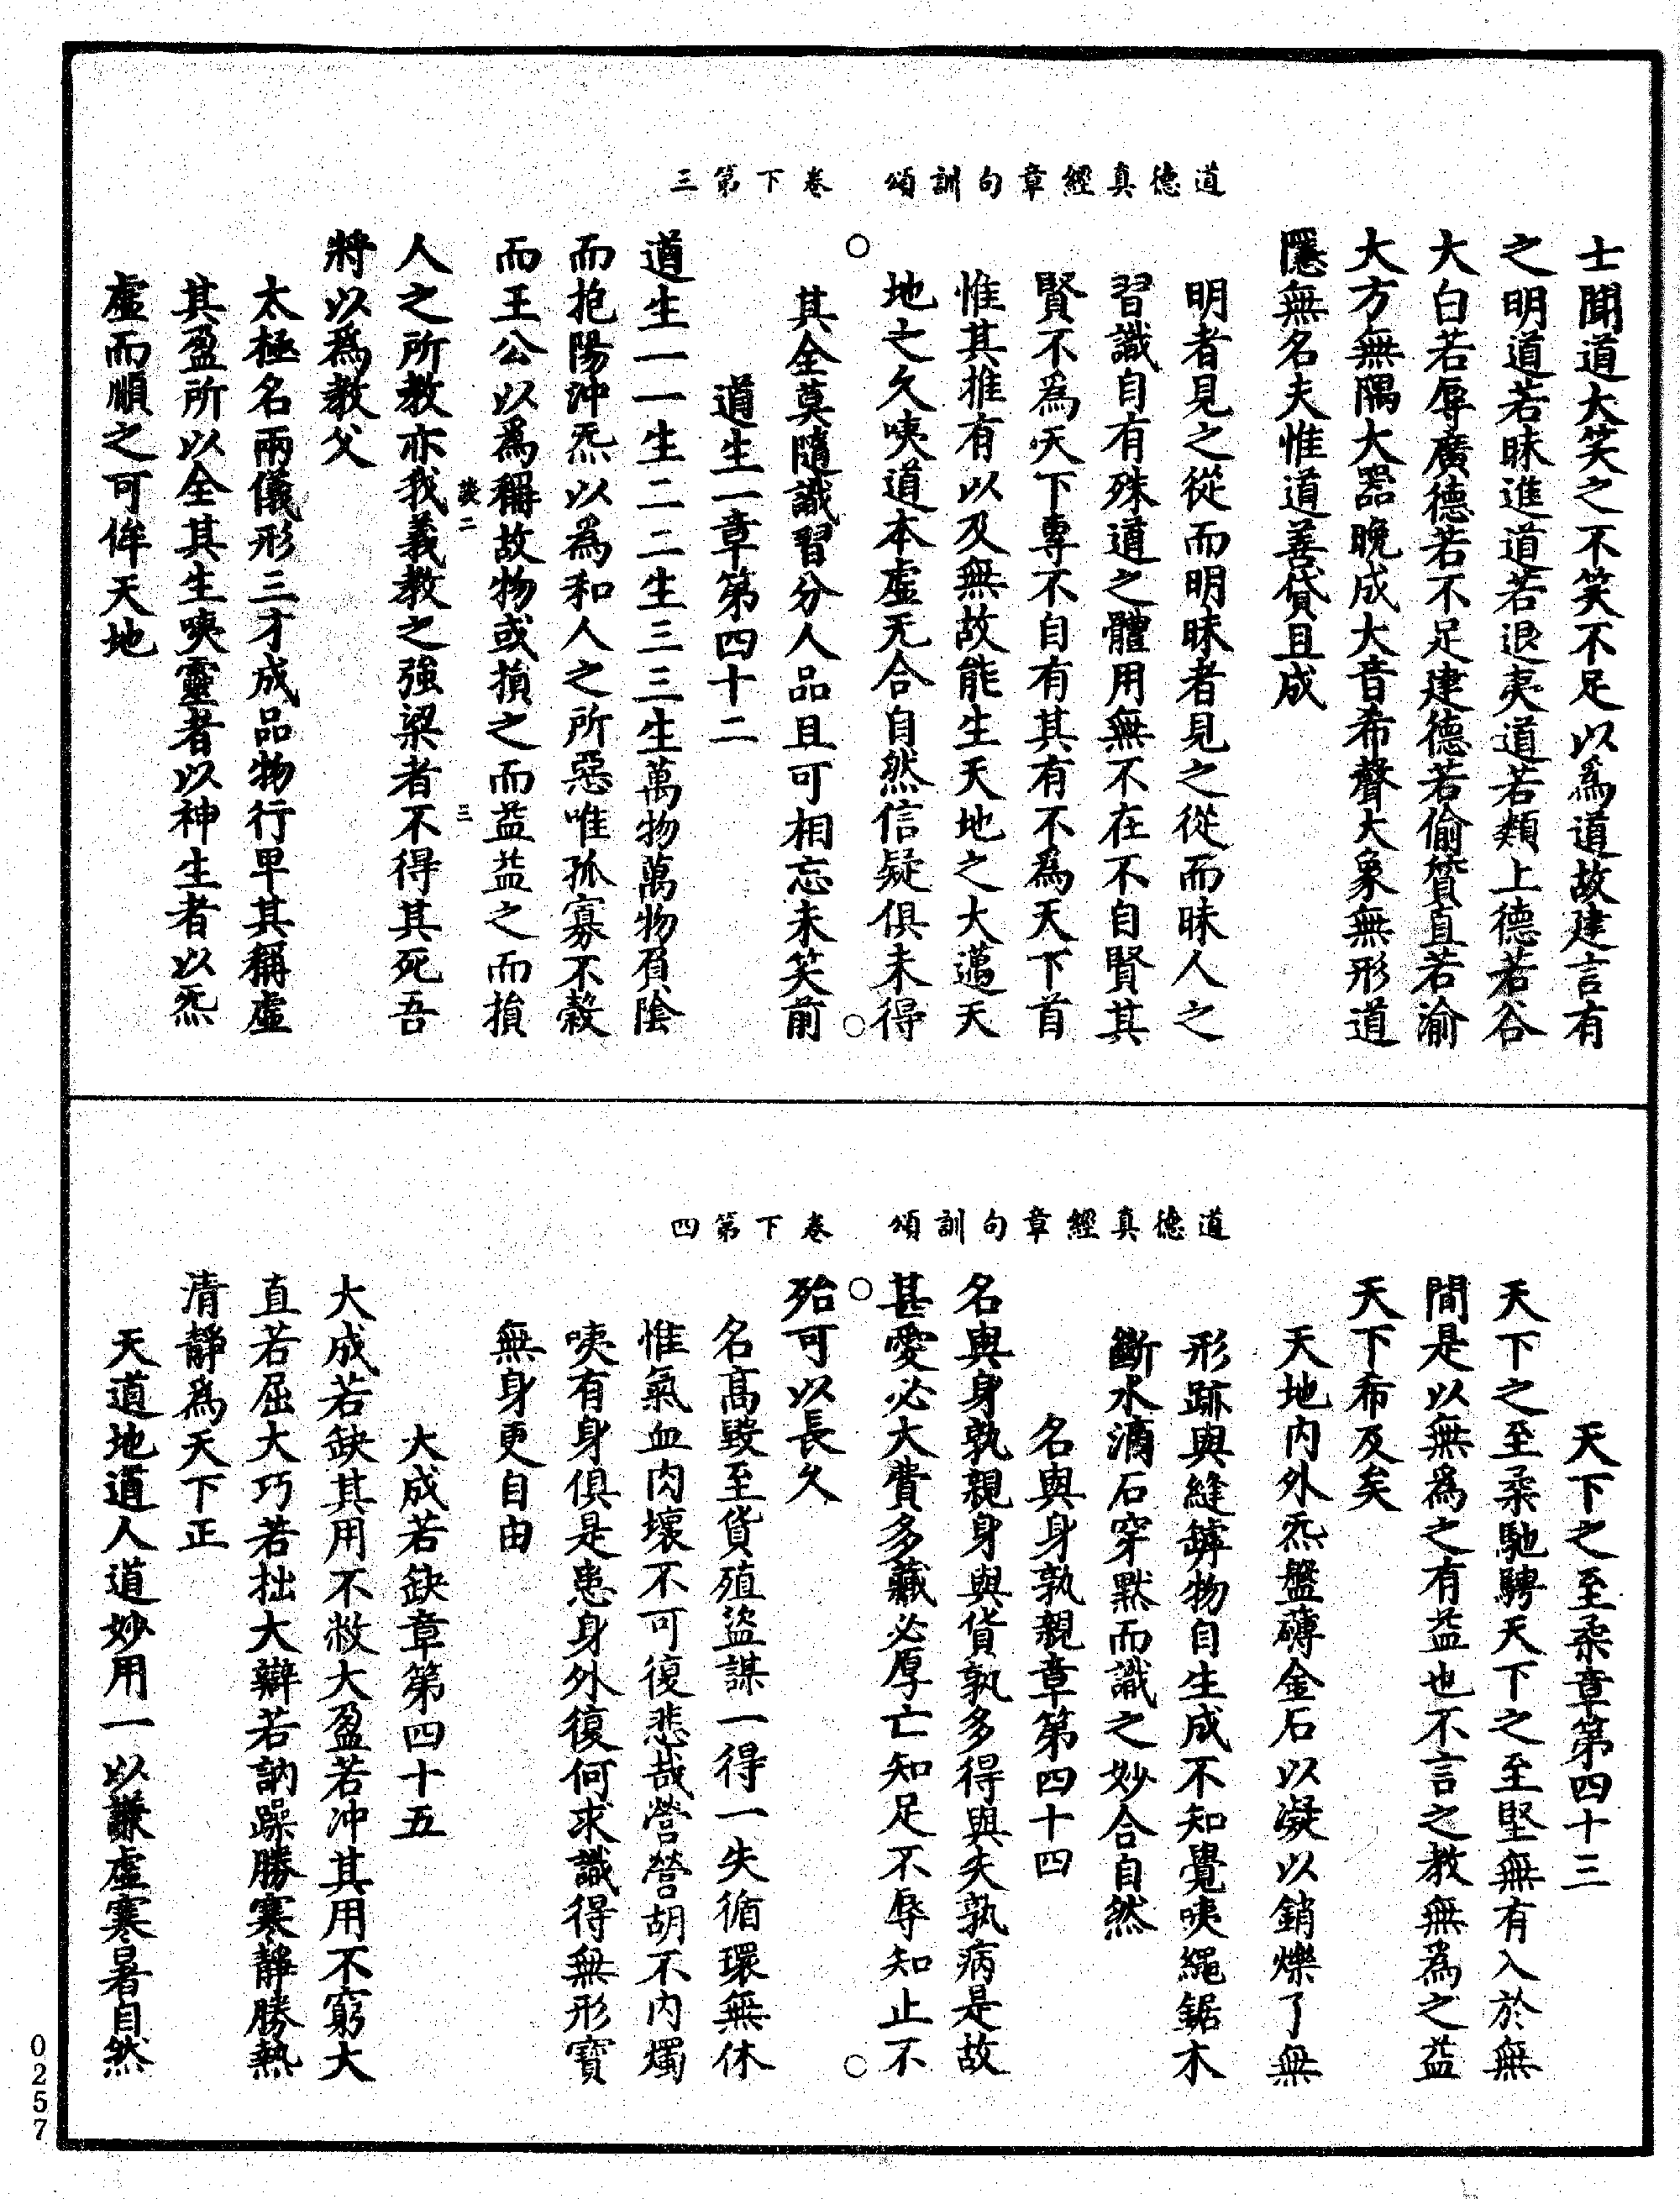 道德真經章句訓頌　卷下第三
士聞道大笑之不笑不足以爲道故建言有
之明道若昧進道若退夷道若類上德若谷
大白若辱廣德若不足建德若偷質直若渝
大方無隅大器晚成大音希聲大象無形道
隱無名夫惟道善貸且成
明者見之從而明昧者見之從而昧人之
習識自有殊道之體用無不在不自賢其
賢不爲天下專不自有其有不爲天下首
惟其推有以及無故能生天地之大邁天
地之久咦道本虛无合自然信疑俱未得
其全莫隨識習分人品且可相忘未笑前
道生一章第四十二
道生一一生二二生三三生萬物萬物負陰
而抱陽沖炁以爲和人之所惡唯孤寡不穀
而王公以爲稱故物或損之而益益之而損
談二　三
人之所教亦我義教之強梁者不得其死吾
將以爲教父
太極名兩儀形三才成品物行卑其稱虛
其盈所以全其生咦靈者以神生者以炁
虛而順之可侔天地
道德真經章句訓頌　卷下第四
天下之至柔章第四十三
天下之至柔馳騁天下之至堅無有入於無
間是以無爲之有益也不言之教無爲之益
天下希及矣
天地內外炁盤礴金石以凝以銷爍了無
形跡與縫罅物自生成不知覺咦繩鋸木
斷水滴石穿默而識之妙合自然
名與身孰親章第四十四
名與身孰親身與貨孰多得與失孰病是故
甚愛必大費多藏必厚亡知足不辱知止不
殆可以長久
名高毀至貨殖盜謀一得一失循環無休
惟氣血肉壞不可復悲哉營營胡不內燭
咦有身俱是患身外復何求識得無形寶
無身更自由
大成若缺章第四十五
大成若缺其用不敝大盈若冲其用不窮大
直若屈大巧若拙大辯若訥躁勝寒靜勝熱
清靜爲天下正
天道地道人道妙用一以謙虛寒暑自然
0257